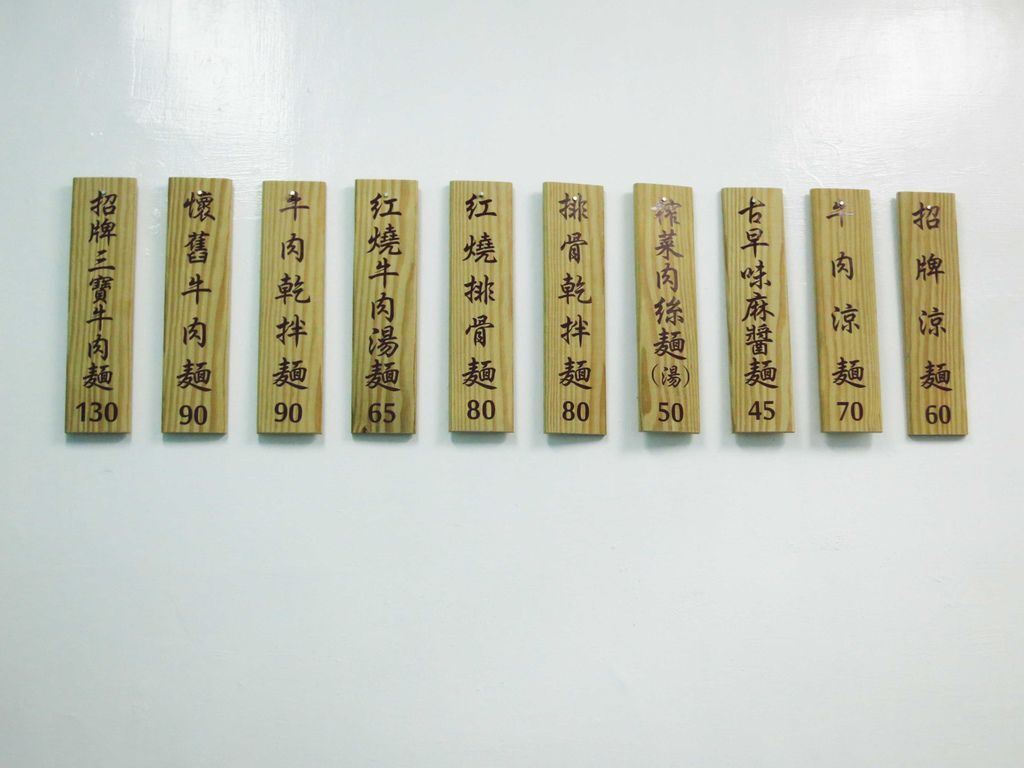 招牌三寶牛肉麵 130
懷舊牛肉麵 90
牛肉乾拌麵 90
紅燒牛肉湯麵 65
紅燒排骨麵 80
排骨乾拌麵 80
榨菜肉絲麵(湯) 50
古早味麻醬麵 45
牛肉涼麵 70
招牌涼麵 60